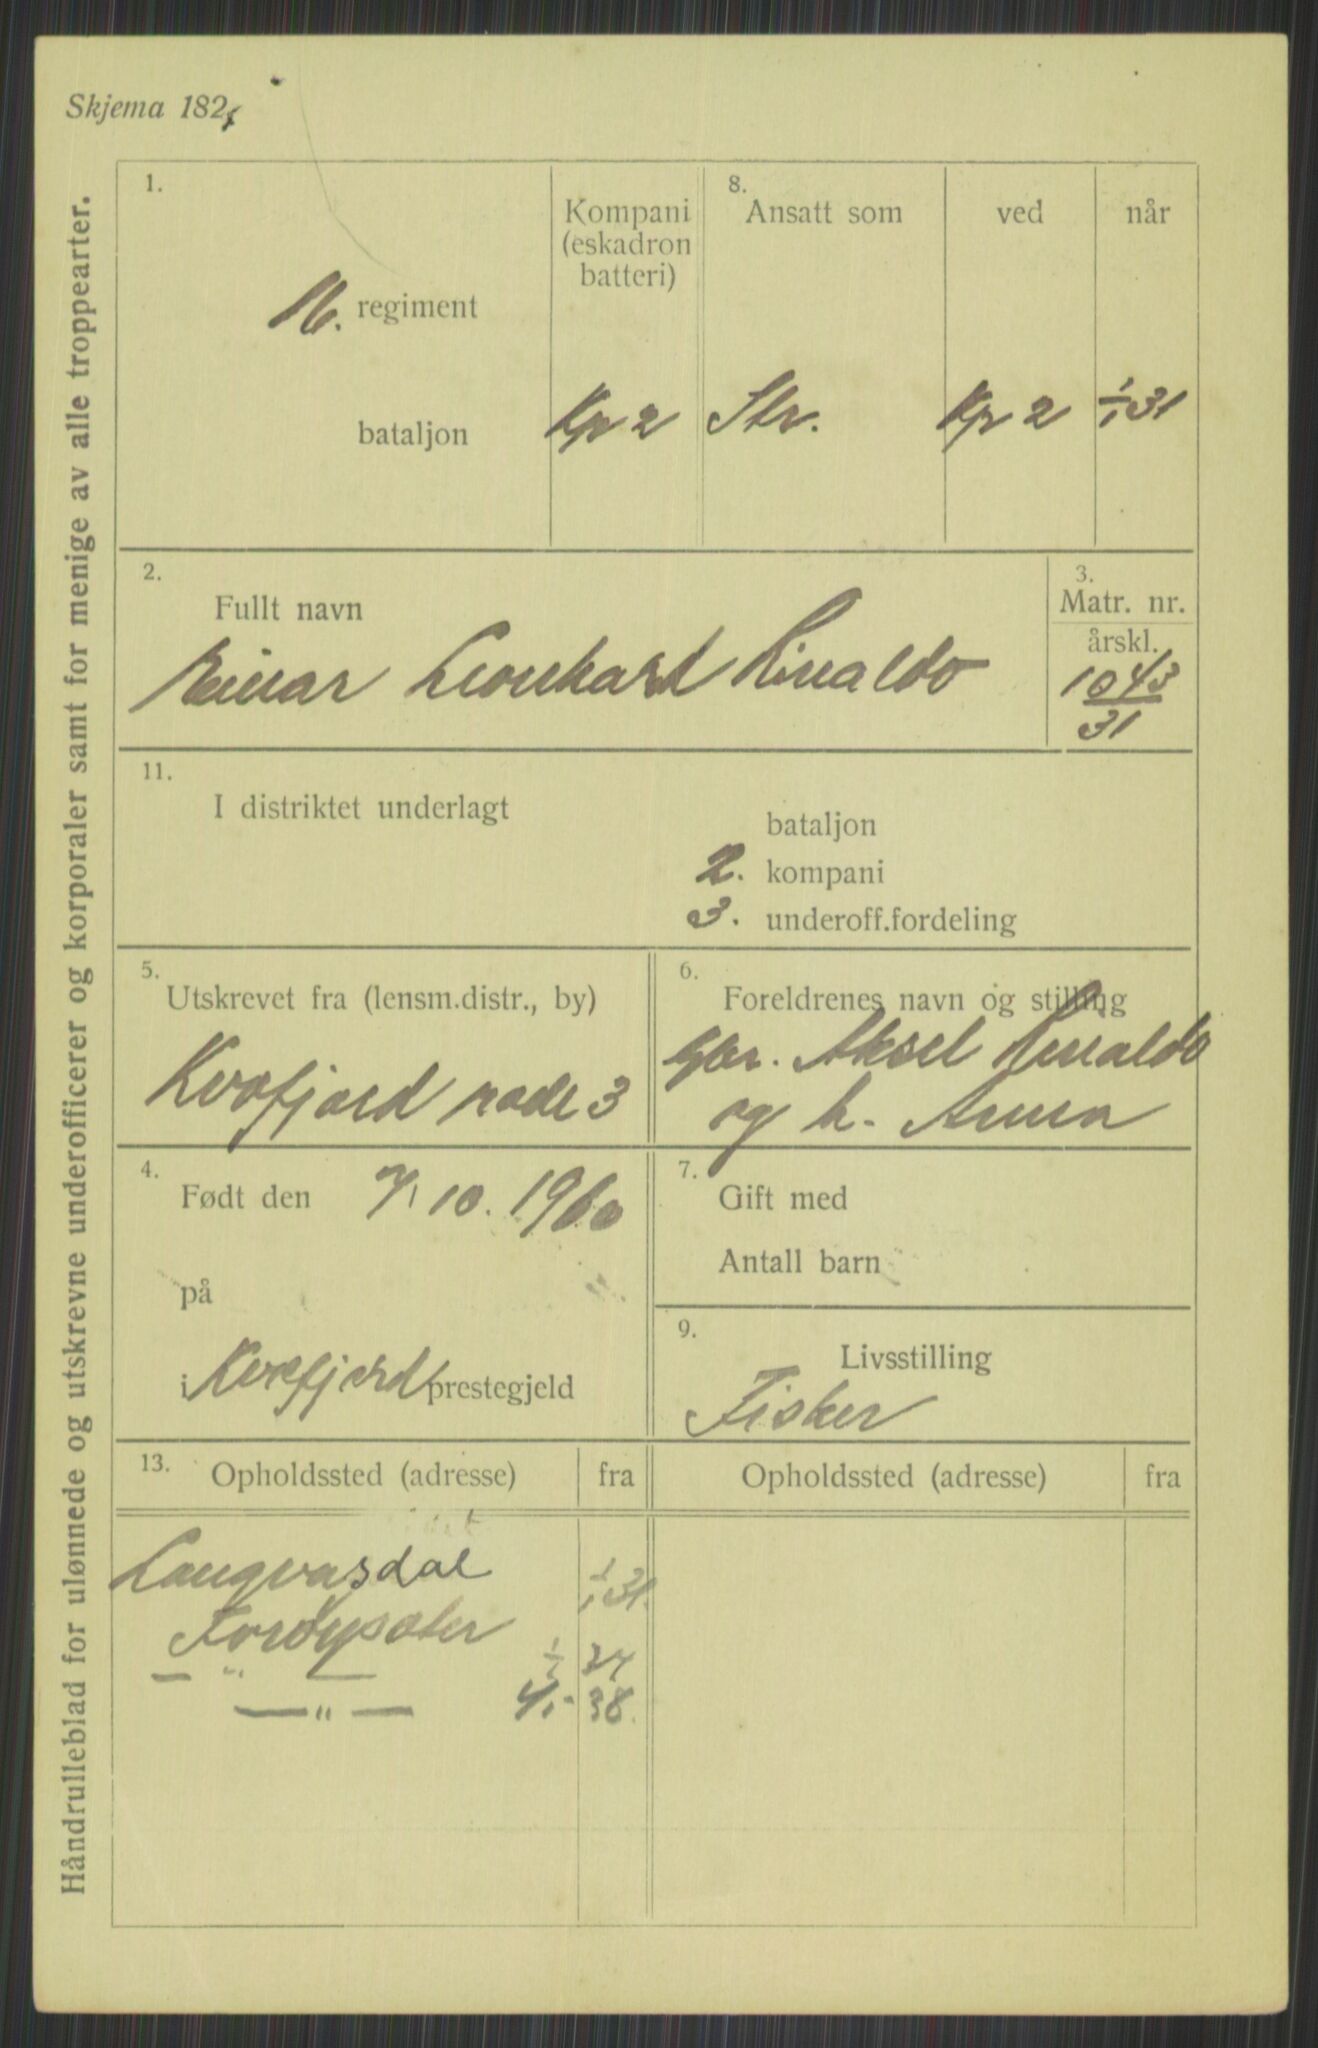 Skjema 182,
Håndrulleblad for ulønnede og utskrevne underofficerer og korporaler samt for menige av alle troppearter.
1.
16. regiment
bataljon
Kompani
(eskadron
batteri)
Kp 2
8.
Ansatt som
Str.
ved
Kp 2
når
1/1 31
2.
Fullt navn
Einar Leonhard Rinaldo
3.
Matr. nr.
årskl.
1043
31
11.
I distriktet underlagt
bataljon
2. kompani
3. underoff.fordeling
5.
Utskrevet fra (lensm.distr., by)
Kvæfjord rode 3
6.
Foreldrenes navn og stilling
Gbr. Aksel Rinaldo
og h. Anna
4.
Født den 7/10. 1960
på
i Kvæfjord prestegjeld
7.
Gift med
Antall barn
9.
Livsstilling
Fisker
13.
Opholdssted (adresse)
fra
Opholdssted (adresse)
fra
Langvasdal
1/1 31.
— " —
34
— " — 38.